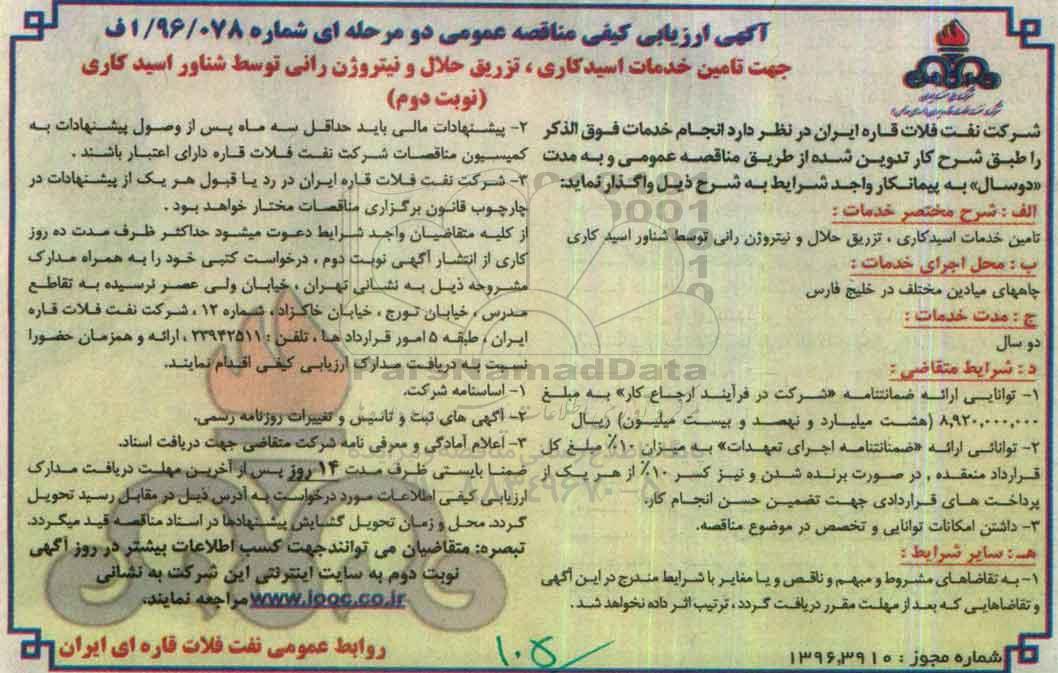 آگهی ارزیابی کیفی مناقصه عمومی دو مرحله ای شماره ۱/۹۶/۰۷۸ف
جهت تامین خدمات اسیدکاری ، تزریق حلال و نیتروژن رانی توسط شناور اسید کاری
(نوبت دوم)
شرکت نفت فلات قاره ایران در نظر دارد انجام خدمات فوق الذکر
را طبق شرح کار تدوین شده از طریق مناقصه عمومی و به مدت
«دوسال» به پیمانکار واجد شرایط به شرح ذیل واگذار نماید:
الف : شرح مختصر خدمات :
تامین خدمات اسیدکاری ، تزریق حلال و نیتروژن رانی توسط شناور اسید کاری
ب : محل اجرای خدمات :
چاههای میادین مختلف در خلیج فارس
ج : مدت خدمات :
دو سال
د : شرایط متقاضی :
۱- توانایی ارائه ضمانتنامه «شرکت در فرآیند ارجاع کار» به مبلغ
۸,۹۲۰,۰۰۰,۰۰۰ (هشت میلیارد و نهصد و بیست میلیون) ریال
۲- توانائی ارائه «ضمانتنامه اجرای تعهدات» به میزان ۱۰٪ مبلغ کل
قرارداد منعقده , در صورت برنده شدن و نیز کسر ۱۰٪ از هر یک از
پرداخت های قراردادی جهت تضمین حسن انجام کار.
۳- داشتن امکانات توانایی و تخصص در موضوع مناقصه.
هـ : سایر شرایط :
۱- به تقاضاهای مشروط و مبهم و ناقص و یا مغایر با شرایط مندرج در این آگهی
و تقاضاهایی که بعد از مهلت مقرر دریافت گردد ، ترتیب اثر داده نخواهد شد .
۲- پیشنهادات مالی باید حداقل سه ماه پس از وصول پیشنهادات به
کمیسیون مناقصات شرکت نفت فلات قاره دارای اعتبار باشند .
۳- شرکت نفت فلات قاره ایران در رد یا قبول هر یک از پیشنهادات در
چارچوب قانون برگزاری مناقصات مختار خواهد بود .
از کلیه متقاضیان واجد شرایط دعوت میشود حداکثر ظرف مدت ده روز
کاری از انتشار آگهی نوبت دوم ، درخواست کتبی خود را به همراه مدارک
مشروحه ذیل به نشانی تهران ، خیابان ولی عصر نرسیده به تقاطع
مدرس ، خیابان تورج ، خیابان خاکزاد ، شماره ۱۲ ، شرکت نفت فلات قاره
ایران ، طبقه ۵ امور قرارداد ها ، تلفن : ۲۳۹۴۲۵۱۱ ، ارائه و همزمان حضورا
نسبت به دریافت مدارک ارزیابی کیفی اقدام نمایند.
۱- اساسنامه شرکت.
۲- آگهی های ثبت و تاسیس و تغییرات روزنامه رسمی.
۳- اعلام آمادگی و معرفی نامه شرکت متقاضی جهت دریافت اسناد.
ضمنا بایستی ظرف مدت ۱۴ روز پس از آخرین مهلت دریافت مدارک
ارزیابی کیفی اطلاعات مورد درخواست به آدرس ذیل در مقابل رسید تحویل
گردد. محل و زمان تحویل گشایش پیشنهادها در اسناد مناقصه قید میگردد.
تبصره: متقاضیان می توانند جهت کسب اطلاعات بیشتر در روز آگهی
نوبت دوم به سایت اینترنتی این شرکت به نشانی
www.iooc.co.ir مراجعه نمایند.
شماره مجوز : ۱۳۹۶,۳۹۱۰
روابط عمومی نفت فلات قاره ای ایران
۱۰۵
ParsNamadData